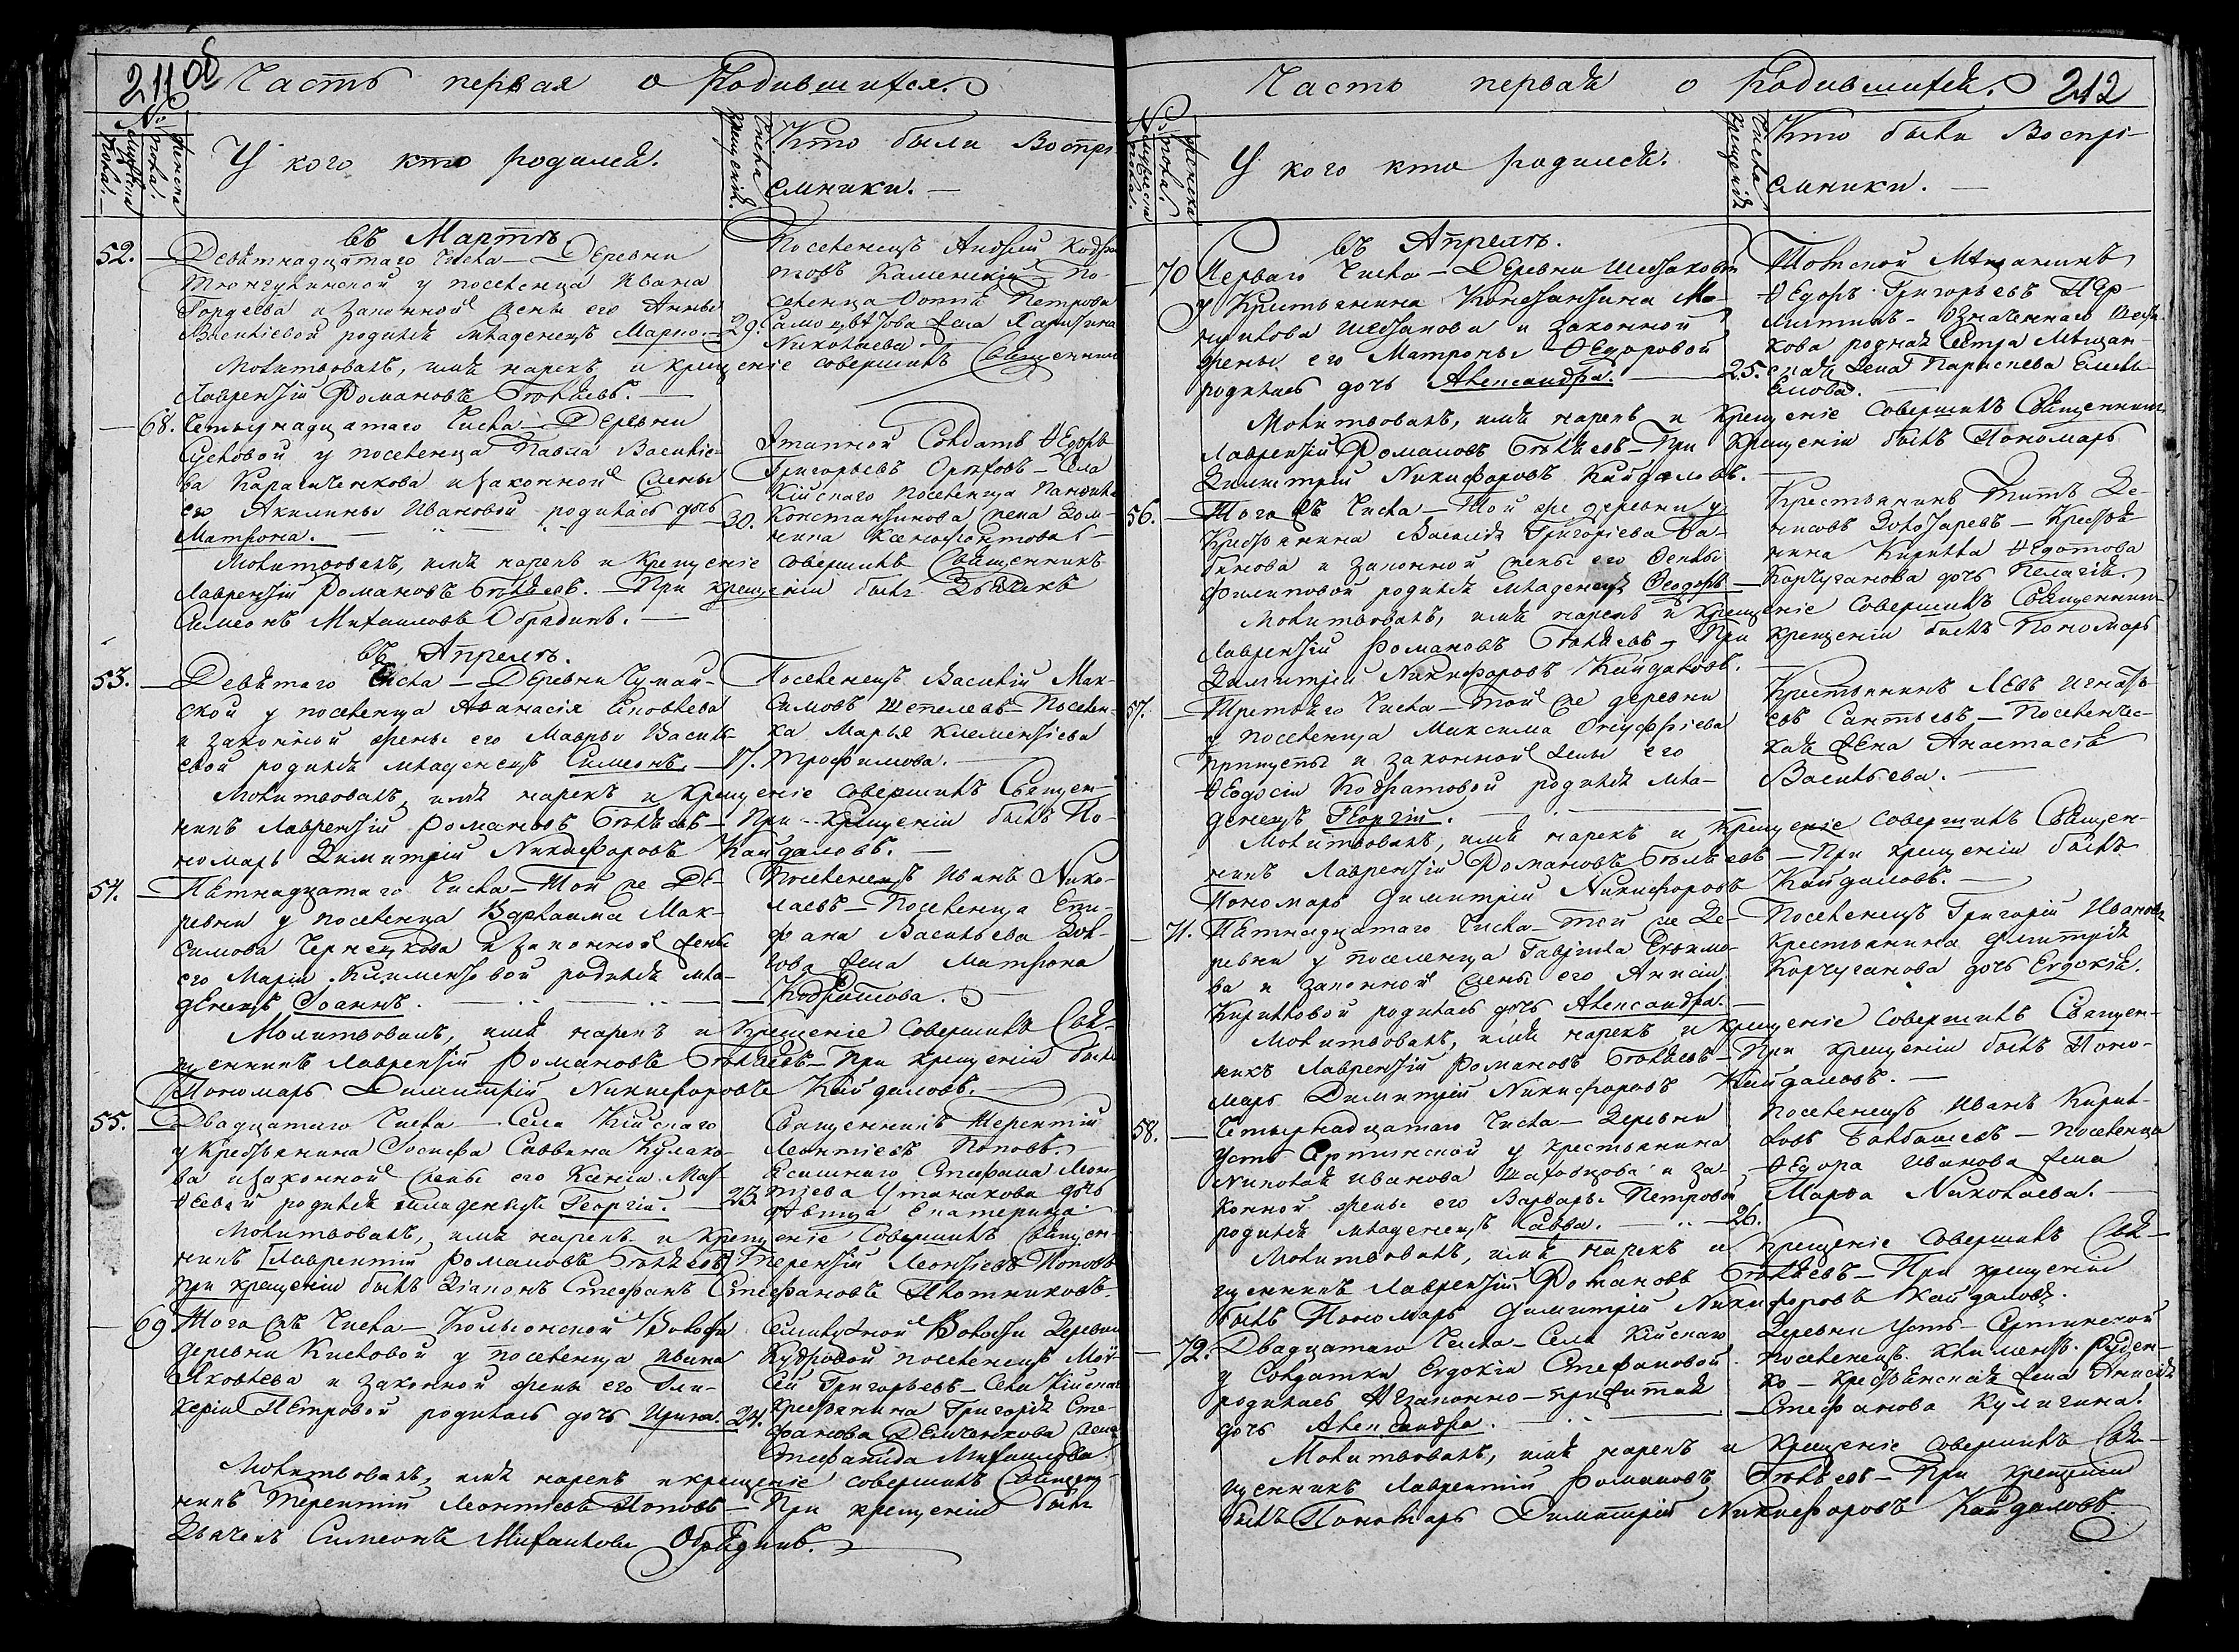 211 об
Часть первая о родившихся.
У кого кто родился.
Числа крещения.
Кто были Воспрі-
емники. —
въ Мартѣ.
52. — Девятнадцатаго Числа — Деревни
у поселенца Ивана
Гордеева и законной жены его Анны
Васильевой родился младенецъ 29.
Поселенецъ Андрей Кодра-
товъ Каменскій — По-
селенца Петрова
жена
Николаева
Молитвовалъ, имя нарекъ и крещеніе совершилъ Священникъ
Лаврентій Романовъ Бѣляевъ. —
68. Четырнадцатаго Числа — Деревни
у поселенца Павла Василье-
ва и законной жены
его Акилины Ивановой родилась дочь 30.
Матрона. —
Этапной Солдатъ Ѳедоръ
Григорьевъ Орѣховъ — Села
Кійскаго поселенца
Константинова жена Дом-
нина Ксенофонтова —
Молитвовалъ, имя нарекъ и крещеніе совершилъ Священникъ
Лаврентій Романовъ Бѣляевъ. — При крещеніи былъ Дьячекъ
Симеонъ Михаиловъ Обрядинъ. —
въ Апрелѣ.
53. — Девятаго Числа — Деревни Чумай-
ской у поселенца Аѳанасія
и законной жены его Мавры Василь-
евой родился младенецъ Симеонъ. — 17.
Поселенецъ Василій Мак-
симовъ Шепелевъ — Поселен-
ка Марья Клементіева
Трофимова. —
Молитвовалъ, имя нарекъ и крещеніе совершилъ Священ-
никъ Лаврентій Романовъ Бѣляевъ — При крещеніи былъ По-
номарь Димитрій Никифоровъ Кайдаловъ. —
54. — Пятнадцатаго Числа — Той же де-
ревни у поселенца Варлаама Мак-
симова и законной жены
его Маріи Климентьевой родился мла-
денецъ Іоаннъ. —
Поселенецъ Иванъ Нико-
лаевъ — Поселенца Епи-
фана Васильева
жена Матрона
Кодратова.
Молитвовалъ, имя нарекъ и Крещеніе совершилъ Свя-
щенникъ Лаврентій Романовъ Бѣляевъ — При крещеніи былъ
Пономарь Димитрій Никифоровъ Кайдаловъ. —
55. — Двадцатаго Числа — Села Кійскаго
у Крестьянина Іосифа Саввина Кулако-
ва и законной жены его Ксеніи Мат-
ѳеевой родился младенецъ Георгій. — 23.
Священникъ Терентій
Леонтіевъ Поповъ.
Стефана Леон-
тіева дочь
дѣвица Екатерина.
Молитвовалъ, имя нарекъ и крещеніе совершилъ Священ-
никъ [Лаврентій Романовъ Бѣляевъ] Терентій Леонтіевъ Поповъ
При крещеніи былъ Діаконъ Стефанъ Стефановъ Плотниковъ.
69 Тогожъ Числа — Волости
деревни Кисловой у поселенца Ивана
Яковлева и законной жены его Гли-
керіи Петровой родилась дочь Ирина. 24.
Волости Деревни
Кудровой поселенецъ Мои-
сей Григорьевъ — Села Кійскаго
крестьянина Григорія Сте-
фанова Демченкова жена
Стефанида Михаилова.
Молитвовалъ, имя нарекъ и крещеніе совершилъ Священ-
никъ Терентій Леонтіевъ Поповъ — При крещеніи былъ
Дьячекъ Симеонъ Михаиловъ Обрядинъ. —
Часть первая о родившихся. 212
У кого кто родился.
Числа крещенія
Кто были Воспрі-
емники. —
въ Апрелѣ.
70 Перваго Числа — Деревни Шестаковой
у Крестьянина Константина Ма-
Шестакова и законной
жены его Матроны Ѳедоровой
родилась дочь Александра. — 25.
Томской Мѣщанинъ
Ѳедоръ Григорьевъ Пер-
митинъ — Означеннаго Шеста-
кова родная Сестра Мѣщан-
ская жена Параскева Емель-
Молитвовалъ, имя нарекъ и Крещеніе совершилъ Священникъ
Лаврентій Романовъ Бѣляевъ — При Крещеніи былъ Пономарь
Димитрій Никифоровъ Кайдаловъ. —
56. — Того жъ Числа — Той же деревни у
Крестьянина Василія Григорьева Ба-
бинова и законной жены его Ѳеклы
Филиповой родился младенецъ Ѳеодоръ —
Крестьянинъ Титъ Де-
нисовъ Золотаревъ — Крестья-
нина Кирилла Ѳедотова
Корчуганова дочь Пелагія.
Молитвовалъ, имя нарекъ и крещеніе совершилъ Священникъ
Лаврентій Романовъ Бѣляевъ — При крещеніи былъ Пономарь
Димитрій Никифоровъ Кайдаловъ. —
57. — Третьяго Числа — Той же деревни
у поселенца Максима Онуфріева
и законной жены его
Ѳеодосіи Кодратовой родился мла-
денецъ Георгій. —
Крестьянинъ Левъ Игнать-
евъ — Поселенчес-
кая жена Анастасія
Васильева. —
Молитвовалъ, имя нарекъ и Крещеніе совершилъ Священ-
никъ Лаврентій Романовъ Бѣляевъ — При крещеніи былъ
Пономарь Димитрій Никифоровъ Кайдаловъ. —
71. Пятнадцатаго Числа — Той же Де-
ревни у поселенца Гаврила Ефимо-
ва и законной жены его Анисіи
Кириловой родилась дочь Александра. —
Поселенецъ Григорій Ивановъ
крестьянина Димитрія
Корчуганова дочь Евдокія.
Молитвовалъ, имя нарекъ и крещеніе совершилъ Священ-
никъ Лаврентій Романовъ Бѣляевъ — При крещеніи былъ Поно-
марь Димитрій Никифоровъ Кайдаловъ. —
58. — Четырнадцатаго Числа — Деревни
Усть Сертинской у крестьянина
Николая Иванова и за-
конной жены его Варвары Петровой
родился младенецъ Савва. — 26.
Поселенецъ Иванъ Кирил-
ловъ — Поселенца
Ѳедора Иванова жена
Марѳа Николаева. —
Молитвовалъ, имя нарекъ и Крещеніе совершилъ Свя-
щенникъ Лаврентій Романовъ Бѣляевъ — При крещеніи
былъ Пономарь Димитрій Никифоровъ Кайдаловъ.
72. Двадцатаго Числа — Села Кійскаго
у Солдатки Евдокіи Стефановой
родилась незаконно-прижитая
дочь Александра. —
Деревни Усть-Сертинской
поселенецъ Климентъ Руден-
ко — крестьянская жена Анисія
Стефанова Кулигина.
Молитвовалъ, имя нарекъ и Крещеніе совершилъ Свя-
щенникъ Лаврентій Романовъ Бѣляевъ — При крещеніи
былъ Пономарь Димитрій Никифоровъ Кайдаловъ.